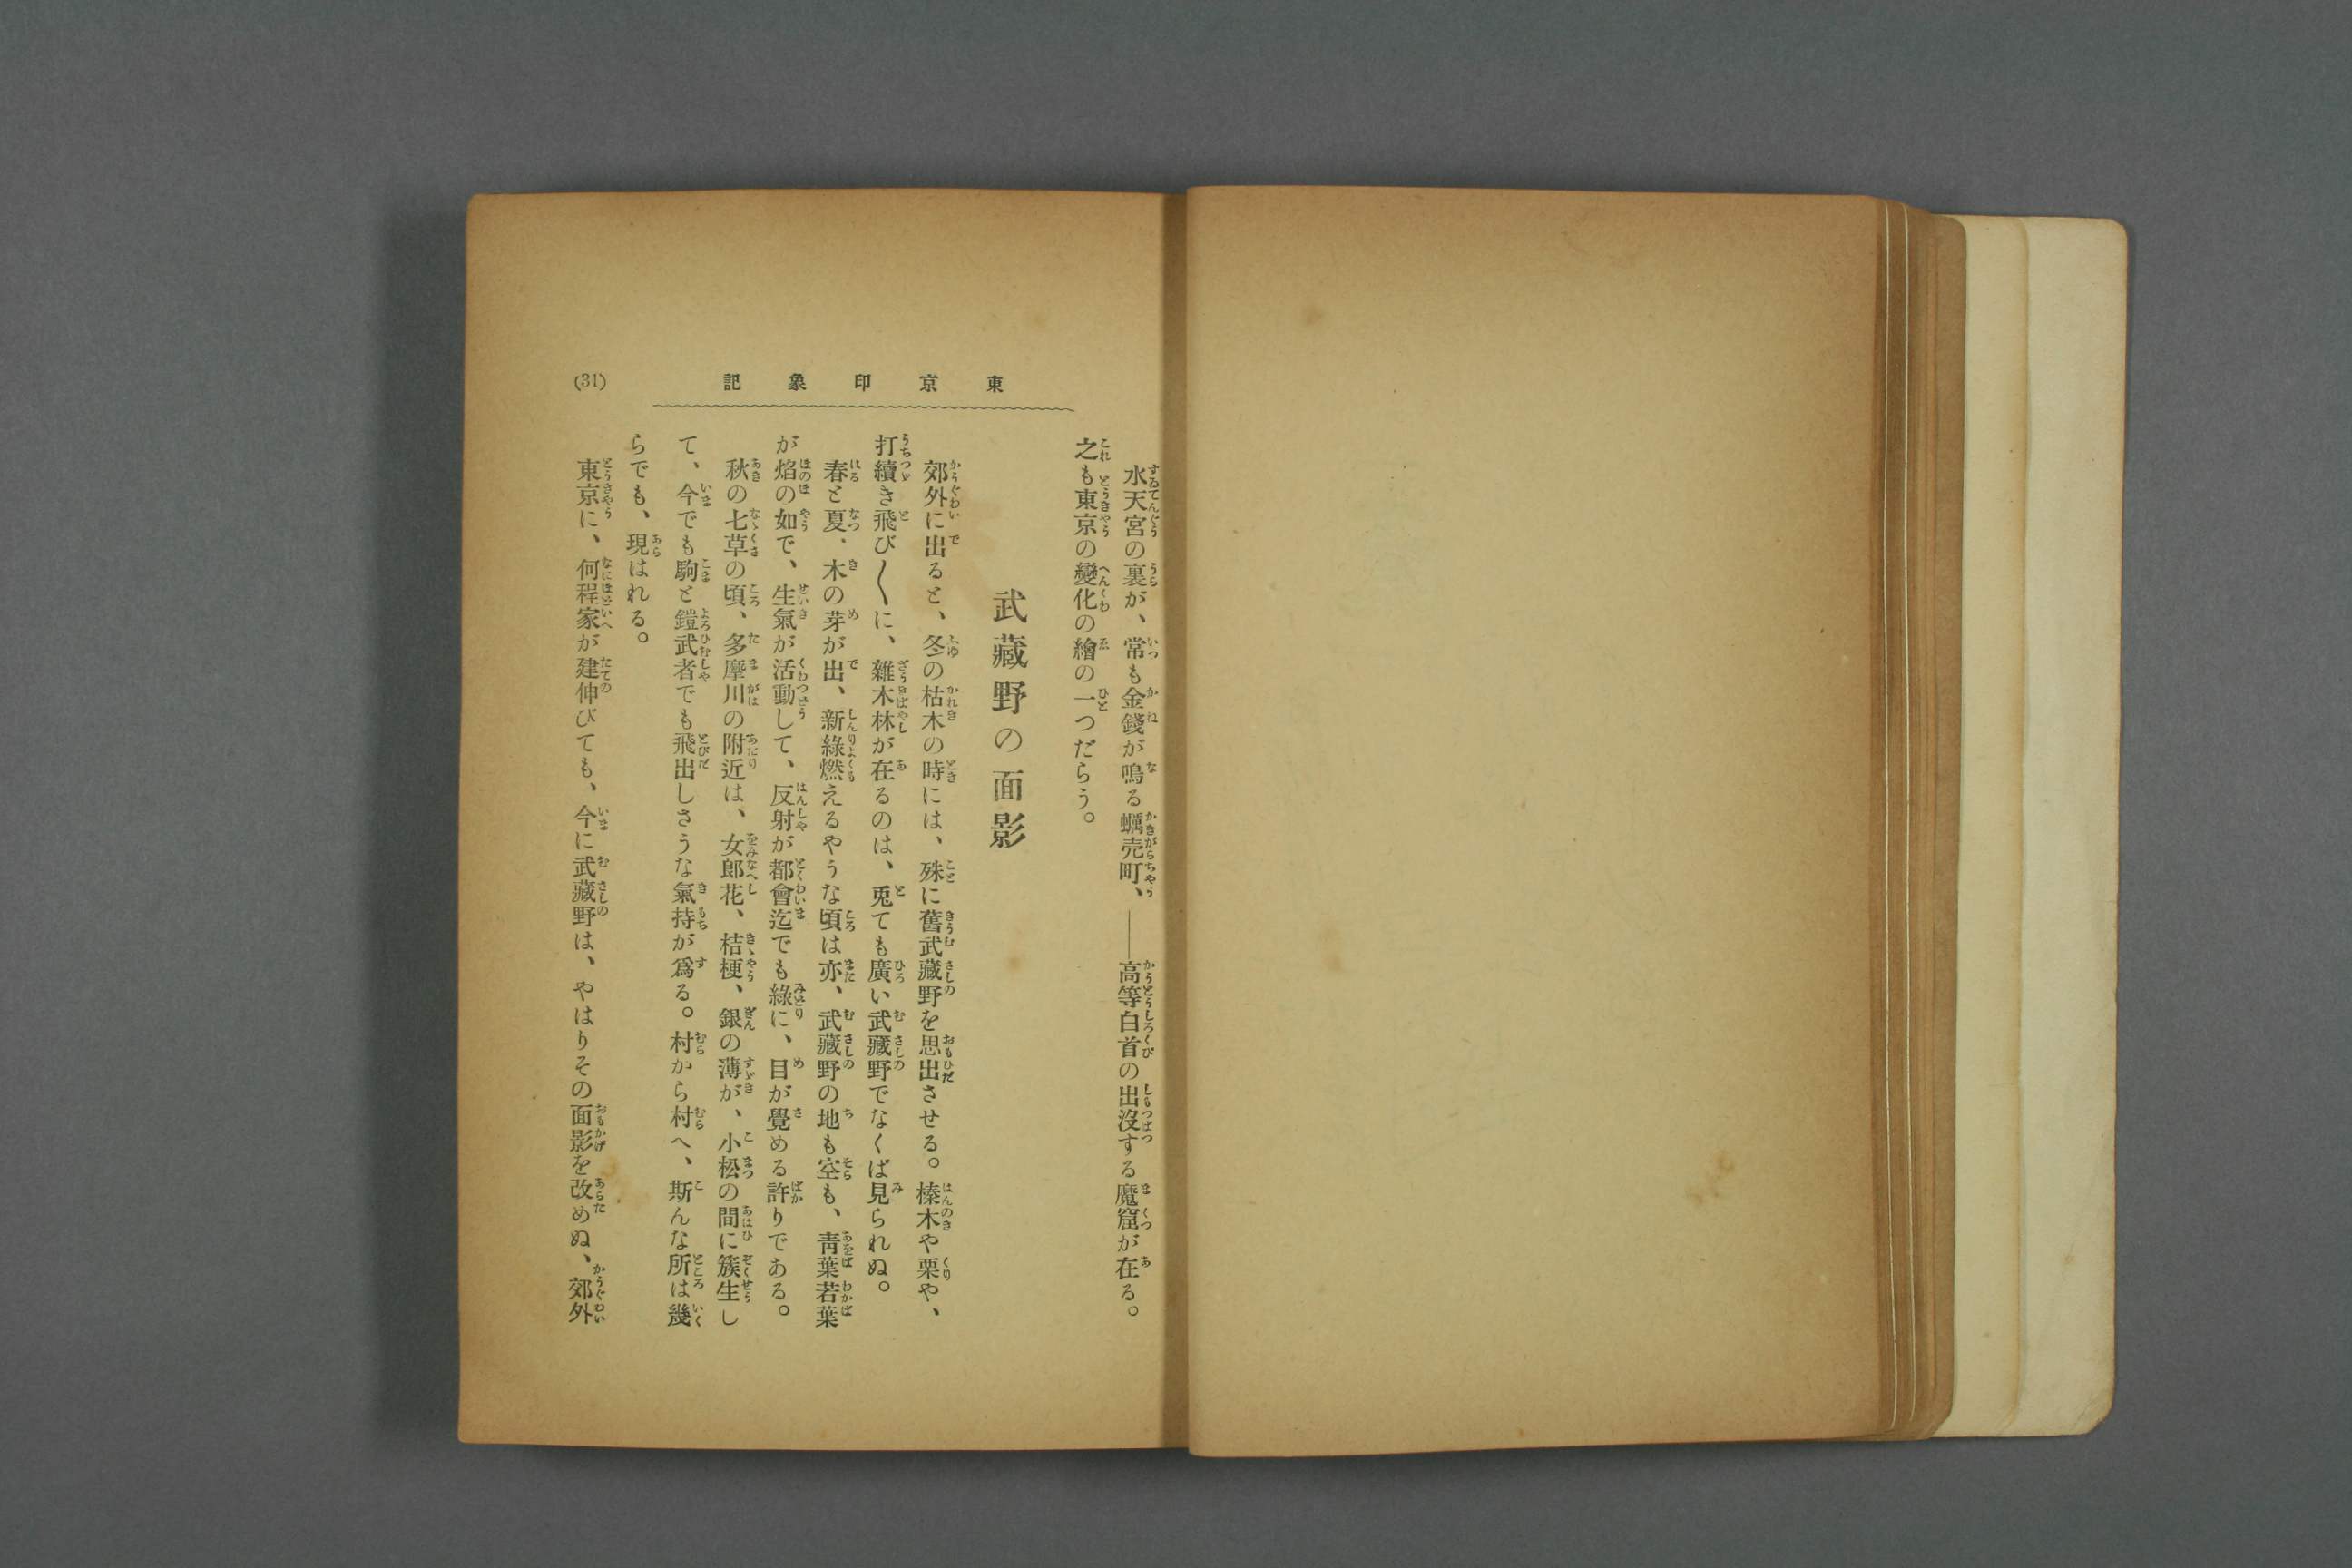 東京印象記
(31)
水天宮の裏が、常も金錢が鳴る蠣売町、――高等白首の出沒する魔窟が在る。
之も東京の變化の繪の一つだらう。
武藏野の面影
郊外に出ると、冬の枯木の時には、殊に舊武藏野を思出させる。榛木や栗や、
打續き飛び〳〵に、雜木林が在るのは、兎ても廣い武藏野でなくば見られぬ。
春と夏．木の芽が出、新綠燃えるやうな頃は亦、武藏野の地も空も、靑葉若葉
が焰の如で、生氣が活動して、反射が都會迄でも綠に、目が覺める許りである。
秋の七草の頃、多摩川の附近は、女郎花、桔梗、銀の薄が、小松の間に簇生し
て、今でも駒と鎧武者でも飛出しさうな氣持が爲る。村から村へ、斯んな所は幾
らでも、現はれる。
東京に、何程家が建伸びても、今に武藏野は、やはりその面影を改めぬ、郊外